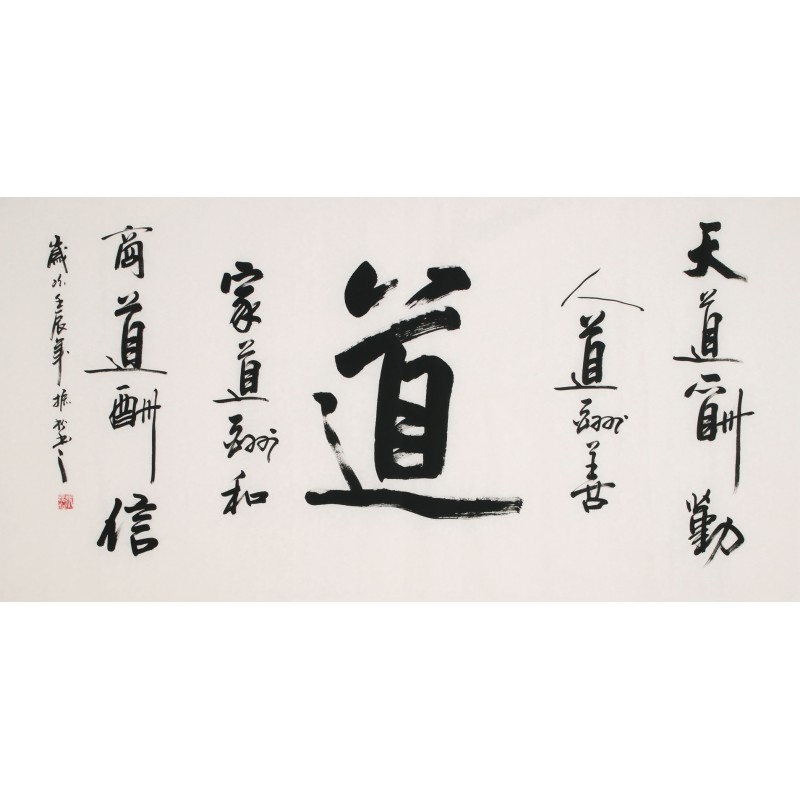 天道酬勤
人道酬善
道
家道酬和
商道酬信
岁次壬辰年振